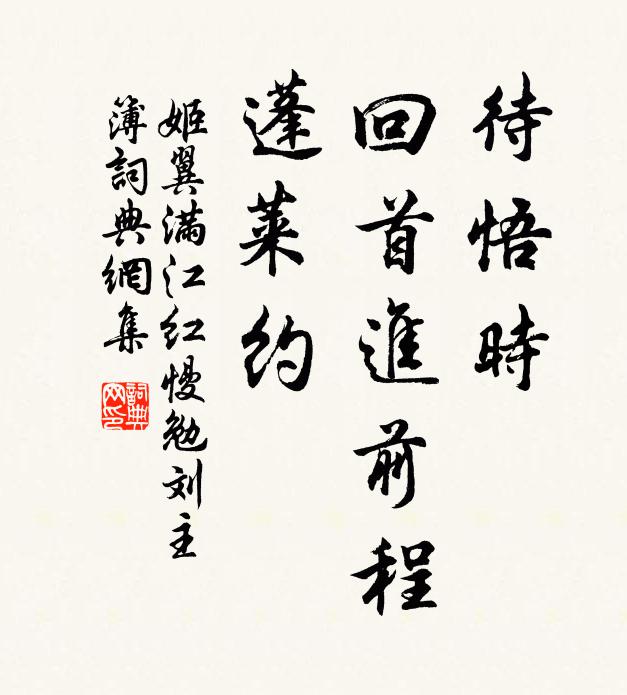 待悟時
回首進前程
蓬萊約
姬翼满江红慢勉刘主
簿詞典網集
詞典
网印